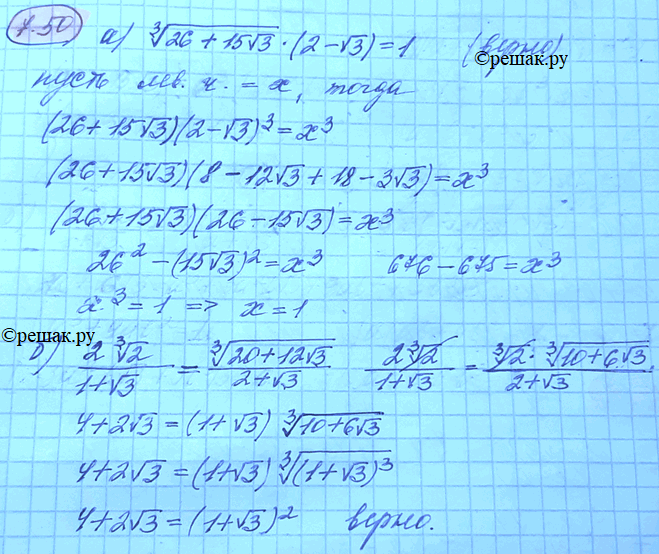 7.50 а) ∛(26 + 15√3) · (2 − √3) = 1 (верно)
©решак.ру
пусть лв. ч. = x, тогда
(26 + 15√3)(2 − √3)³ = x³
(26 + 15√3)(8 − 12√3 + 18 − 3√3) = x³
(26 + 15√3)(26 − 15√3) = x³
26² − (15√3)² = x³ 676 − 675 = x³
x³ = 1 => x = 1
©решак.ру
б) 2∛2/(1+√3) = ∛(20+12√3)/(2+√3) 2∛2/(1+√3) = ∛2 · ∛(10+6√3)/(2+√3)
4 + 2√3 = (1+√3) ∛(10+6√3)
4 + 2√3 = (1+√3) ∛((1+√3)³)
4 + 2√3 = (1+√3)² верно.